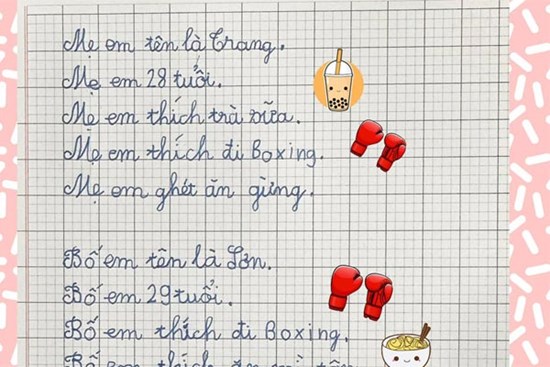 Mẹ em tên là Trang.
Mẹ em 28 tuổi.
Mẹ em thích trà sữa.
Mẹ em thích đi Boxing.
Mẹ em ghét ăn gừng.
Bố em tên là Sơn.
Bố em 29 tuổi.
Bố em thích đi Boxing.
Bố em thích ăn mì tôm